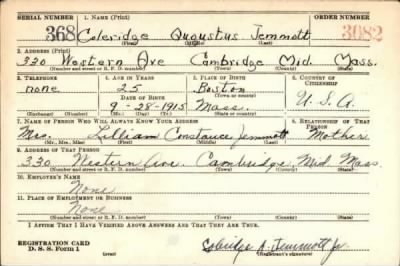 SERIAL NUMBER 1. NAME (Print) ORDER NUMBER
368 Coleridge Augustus Jemmott 3082
(First) (Middle) (Last)
2. ADDRESS (Print)
330 Western Ave Cambridge Mid. Mass.
(Number and street or R. F. D. number) (Town) (County) (State)
3. TELEPHONE 4. AGE IN YEARS 5. PLACE OF BIRTH 6. COUNTRY OF CITIZENSHIP
none 25 Boston
(Town or county)
DATE OF BIRTH
9-28-1915 Mass. U.S.A.
(Exchange) (Number) (Mo.) (Day) (Yr.) (State or country)
7. NAME OF PERSON WHO WILL ALWAYS KNOW YOUR ADDRESS 8. RELATIONSHIP OF THAT PERSON
Mrs. Lillian Constance Jemmott Mother
(Mr., Mrs., Miss) (First) (Middle) (Last)
9. ADDRESS OF THAT PERSON
330 Western Ave. Cambridge, Mid Mass
(Number and street or R. F. D. number) (Town) (County) (State)
10. EMPLOYER'S NAME
None
11. PLACE OF EMPLOYMENT OR BUSINESS
None
(Number and street or R. F. D. number) (Town) (County) (State)
I AFFIRM THAT I HAVE VERIFIED ABOVE ANSWERS AND THAT THEY ARE TRUE.
REGISTRATION CARD
D. S. S. Form 1 Coleridge A. Jemmott Jr
(Registrant's signature)